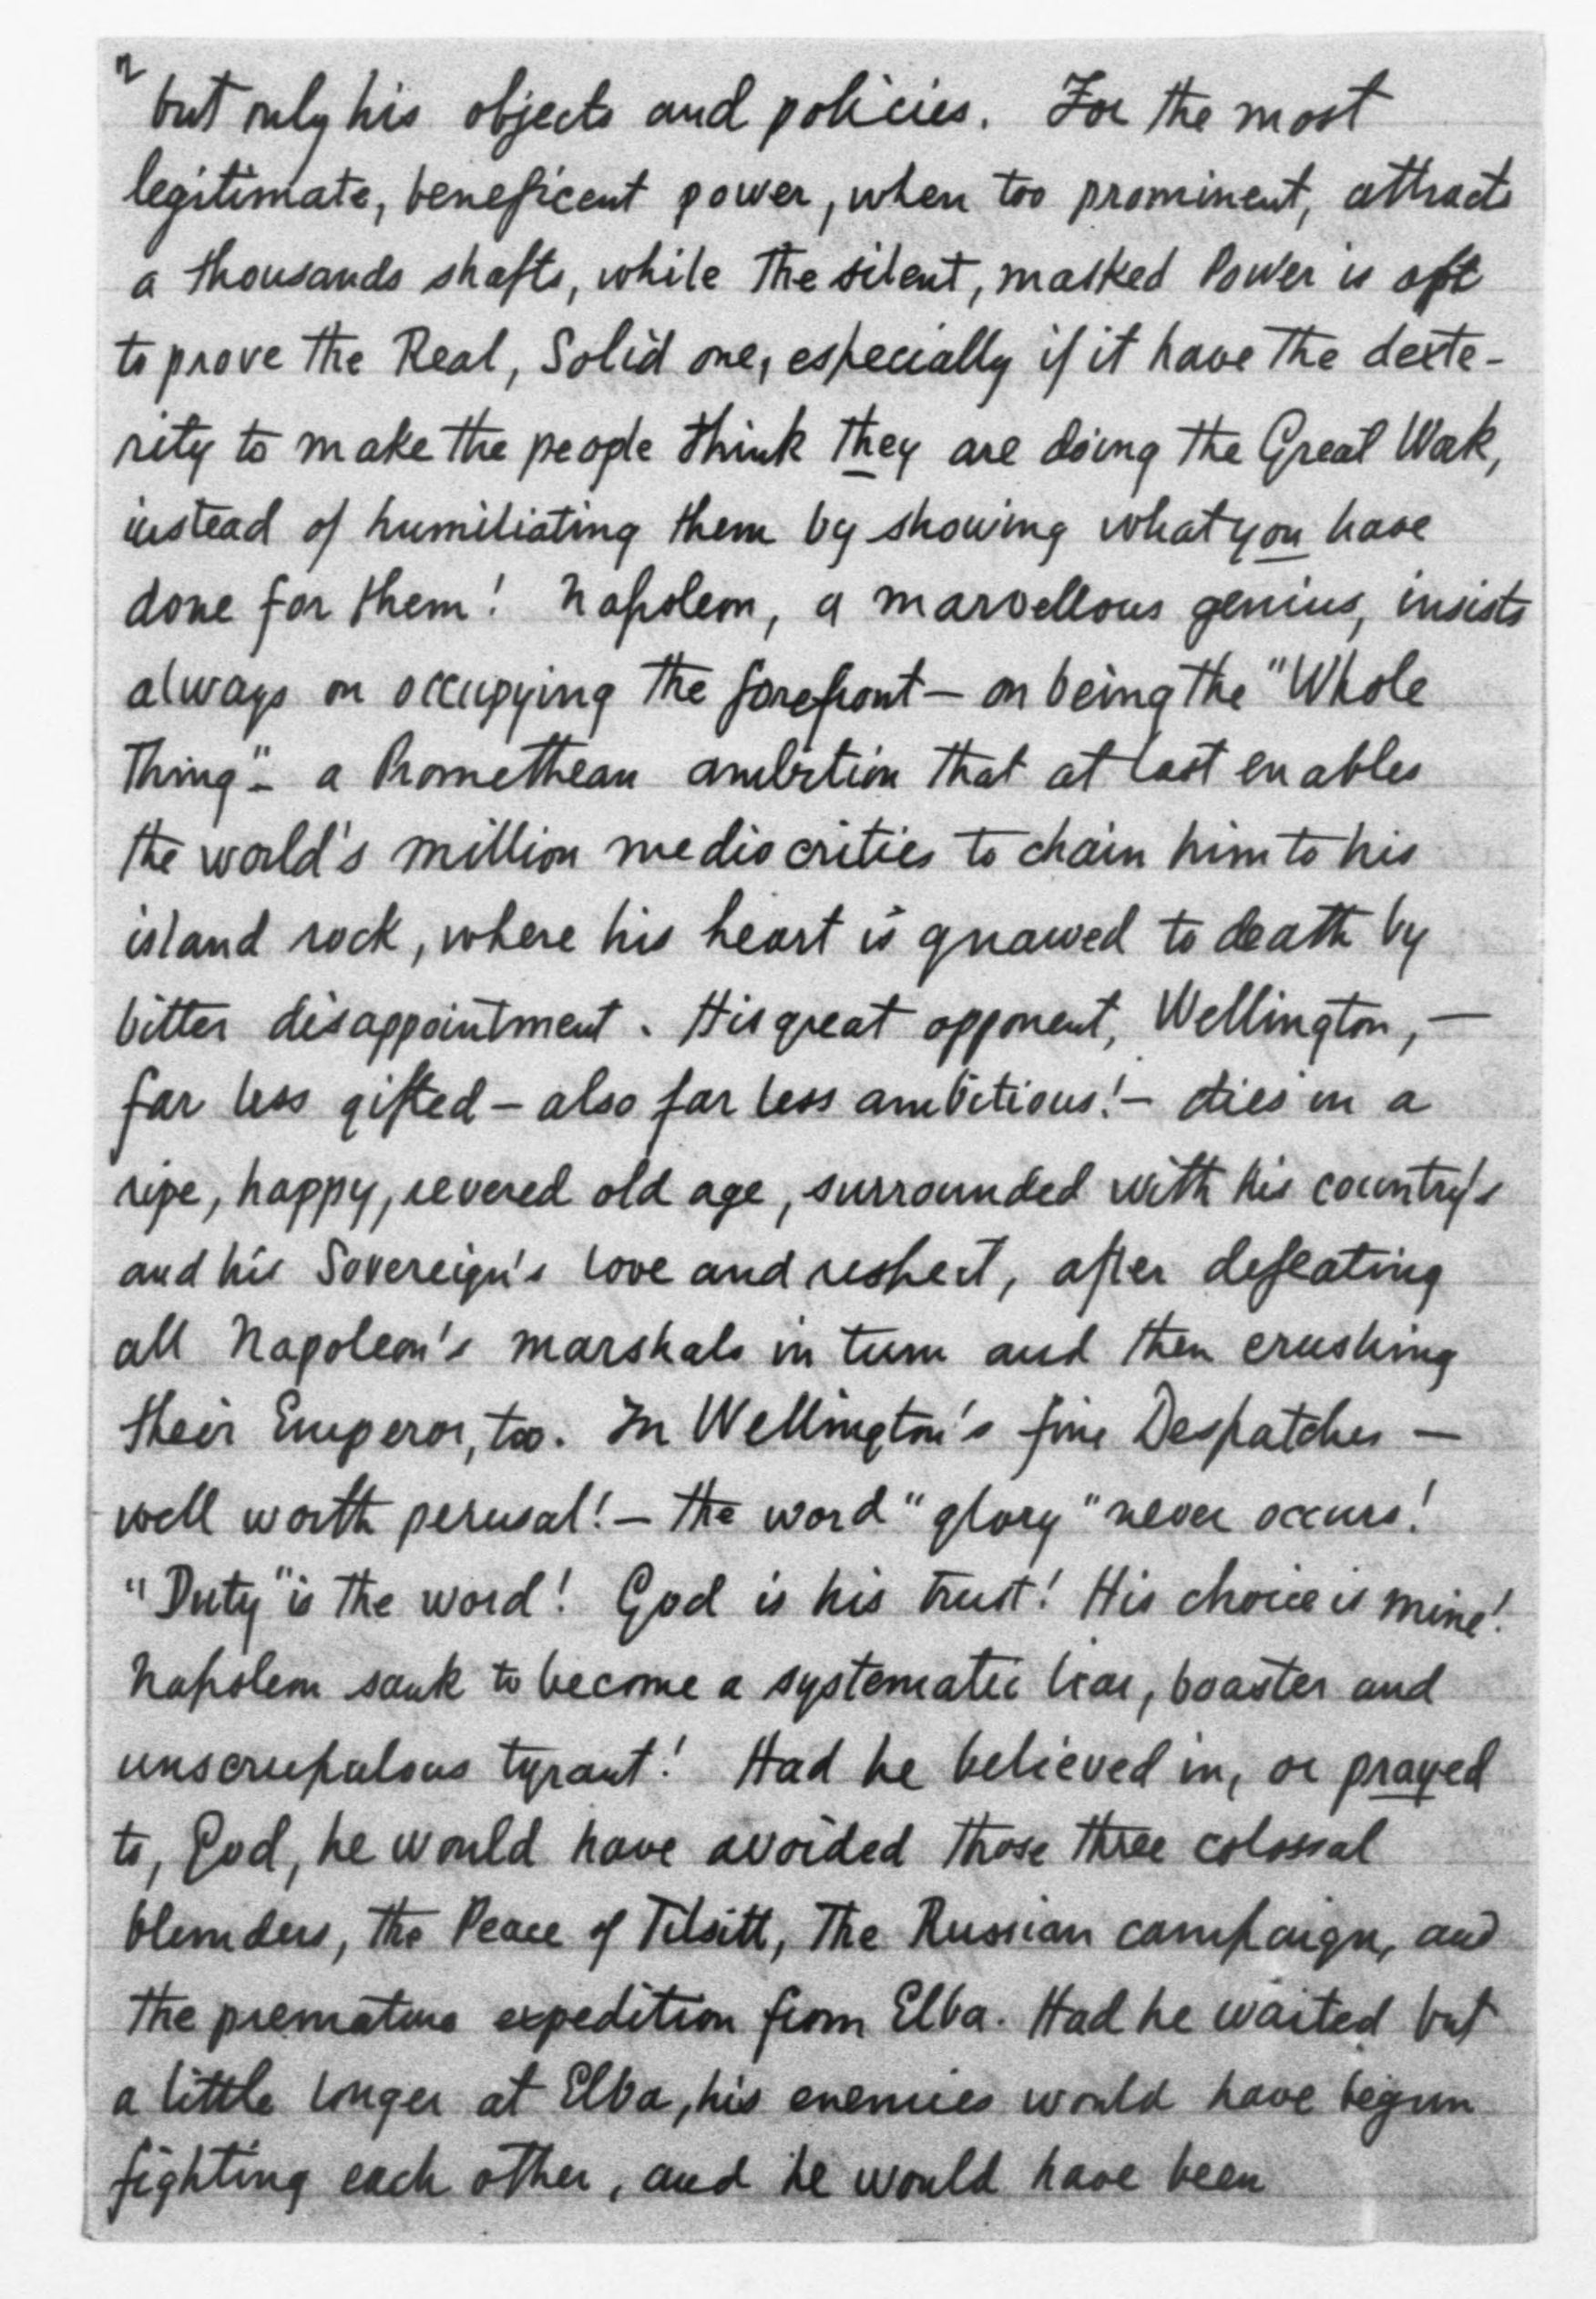 2
but only his objects and policies. For the most
legitimate, beneficent power, when too prominent, attracts
a thousands shafts, while the silent, masked Power is apt
to prove the Real, Solid one, especially if it have the dexte-
rity to make the people think they are doing the Great Work,
instead of humiliating them by showing what you have
done for them! Napoleon, a marvellous genius, insists
always on occupying the forefront — on being the "Whole
Thing" — a Promethean ambition that at last enables
the world's million mediocrities to chain him to his
island rock, where his heart is gnawed to death by
bitter disappointment. His great opponent, Wellington, —
far less gifted — also far less ambitious! — dies in a
ripe, happy, revered old age, surrounded with his country's
and his Sovereign's love and respect, after defeating
all Napoleon's marshals in turn and then crushing
their Emperor, too. In Wellington's fine Despatches —
well worth perusal! — the word "glory" never occurs!
"Duty" is the word! God is his trust! His choice is mine!
Napoleon sank to become a systematic liar, boaster and
unscrupulous tyrant! Had he believed in, or prayed
to, God, he would have avoided those three colossal
blunders, the Peace of Tilsitt, The Russian campaign, and
the premature expedition from Elba. Had he waited but
a little longer at Elba, his enemies would have begun
fighting each other, and he would have been